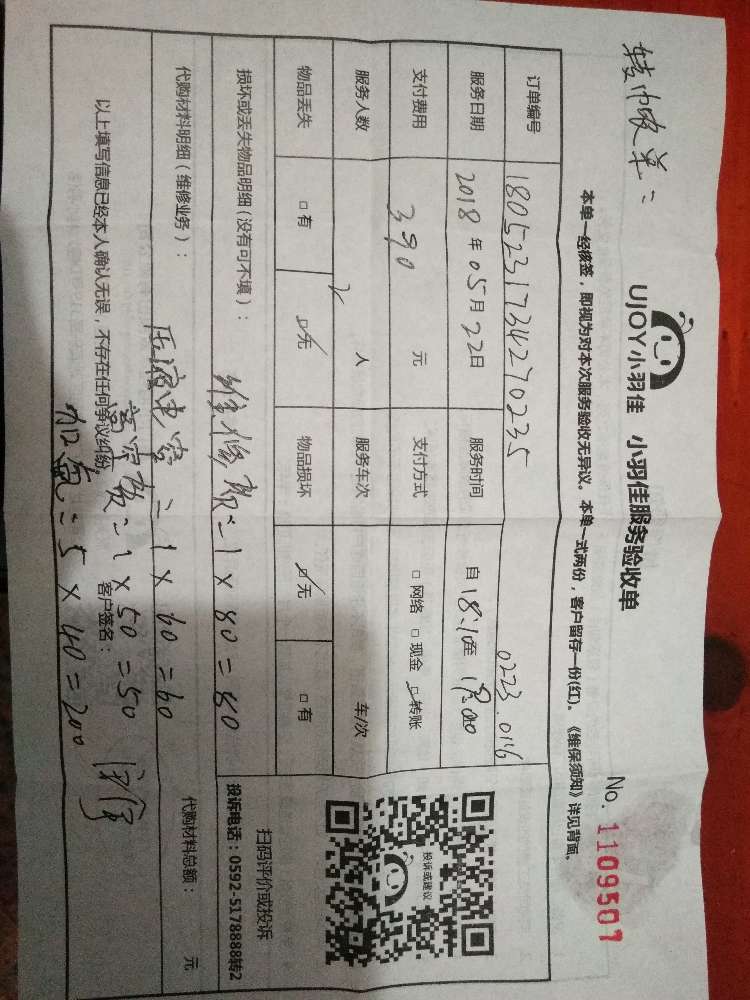 转巾收单：
UJOY小羽佳 小羽佳服务验收单
No. 1109507
本单一经核签，即视为对本次服务验收无异议。本单一式两份，客户留存一份(红)。《维保须知》详见背面。
订单编号 180523173427023 5 0223.0116
服务日期 2018年05月22日 服务时间 自18:10至19:00
支付费用 390 元 支付方式 □网络 □现金 ☑转账
服务人数 2 人 服务车次 车/次
物品丢失 □有 ☑无 物品损坏 ☑无 □有
损坏或丢失物品明细(没有可不填)：
维修费：1×80=80
代购材料明细(维修业务)：
1×60=60
代购材料总额： 元
1×50=50
以上填写信息已经本人确认无误，不存在任何争议纠纷。
客户签名：
加氟：5×40=200
投诉或建议
扫码评价或投诉
投诉电话：0592-5178888转2